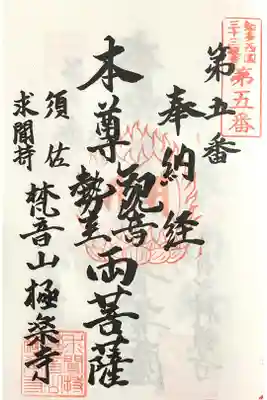 知多西国
第五番
第五番
奉納経
本尊 観音 勢至 両菩薩
須佐
求聞持
梵音山極楽寺